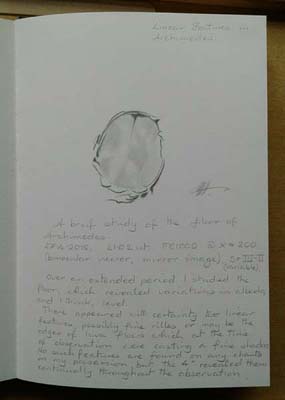 Linear Features ...
Archimedes
A brief study of the floor of
Archimedes
2018, 21:02 ut. FC100D @ x 200
(binocular viewer, mirror image), Se III-II
(variable)
Over an extended period I studied the
floor, which revealed variations in albedo,
and I think, level.
There appeared with certainty two linear
features, possibly fine rilles or may be the
edges of lava flows which at the time
of observation were casting a fine shadow.
No such features are found on any charts
in my possession but the 4" revealed them
continually throughout the observation.